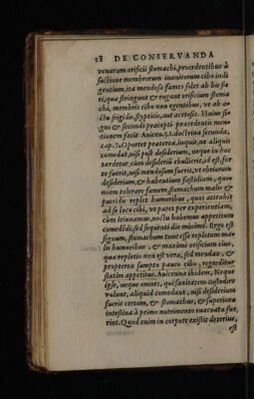 28 DE CONSERVANDA
venarum orificii stomachi, procedentibus à
suctione membrorum inanitorum cibo indi
gentium, ita mendosa fames solet ab his fie
ri, quæ stringunt & rugant orificium stoma
chi, membris cibo non egentibus, ut ab a-
ctu frigido, styptico, aut acetoso. Huius si-
gni & secundi præcepti procedentis men-
tionem facit Auicen. 3.1. doctrina secunda,
cap. 7. Oportet præterea, inquit, ne aliquis
comedat, nisi post desiderium, neque in hoc
tardetur, cum desideriũ ebullierit, id est, for
te fuerit, nisi mendosum fuerit, ut ebriorum
desiderium, & habentium fastidium, quo-
niam tolerare famem stomachum malis &
putridis replet humoribus, quos attrahit
ad se loco cibi, ut patet per experientiam,
cum ieiunamus, noctu habemus appetitum
comedẽdi, sed sequenti die minimè. Ergo est
signum, stomachum tunc esse repletum ma-
lis humoribus, & maximè orificium eius,
quæ repletio non est vera, sed mendax, &
propterea sumpto pauco cibo, regreditur
statim appetitus. Auicenna ibidem, Neque
ipse, neque omnes, qui sanitatem custodire
volunt, aliquid comedant, nisi desiderium
fuerit certum, & stomachus, & superiora
intestina à primo nutrimento euacuata fue
rint. Quod enim in corpore existit deterius,
est